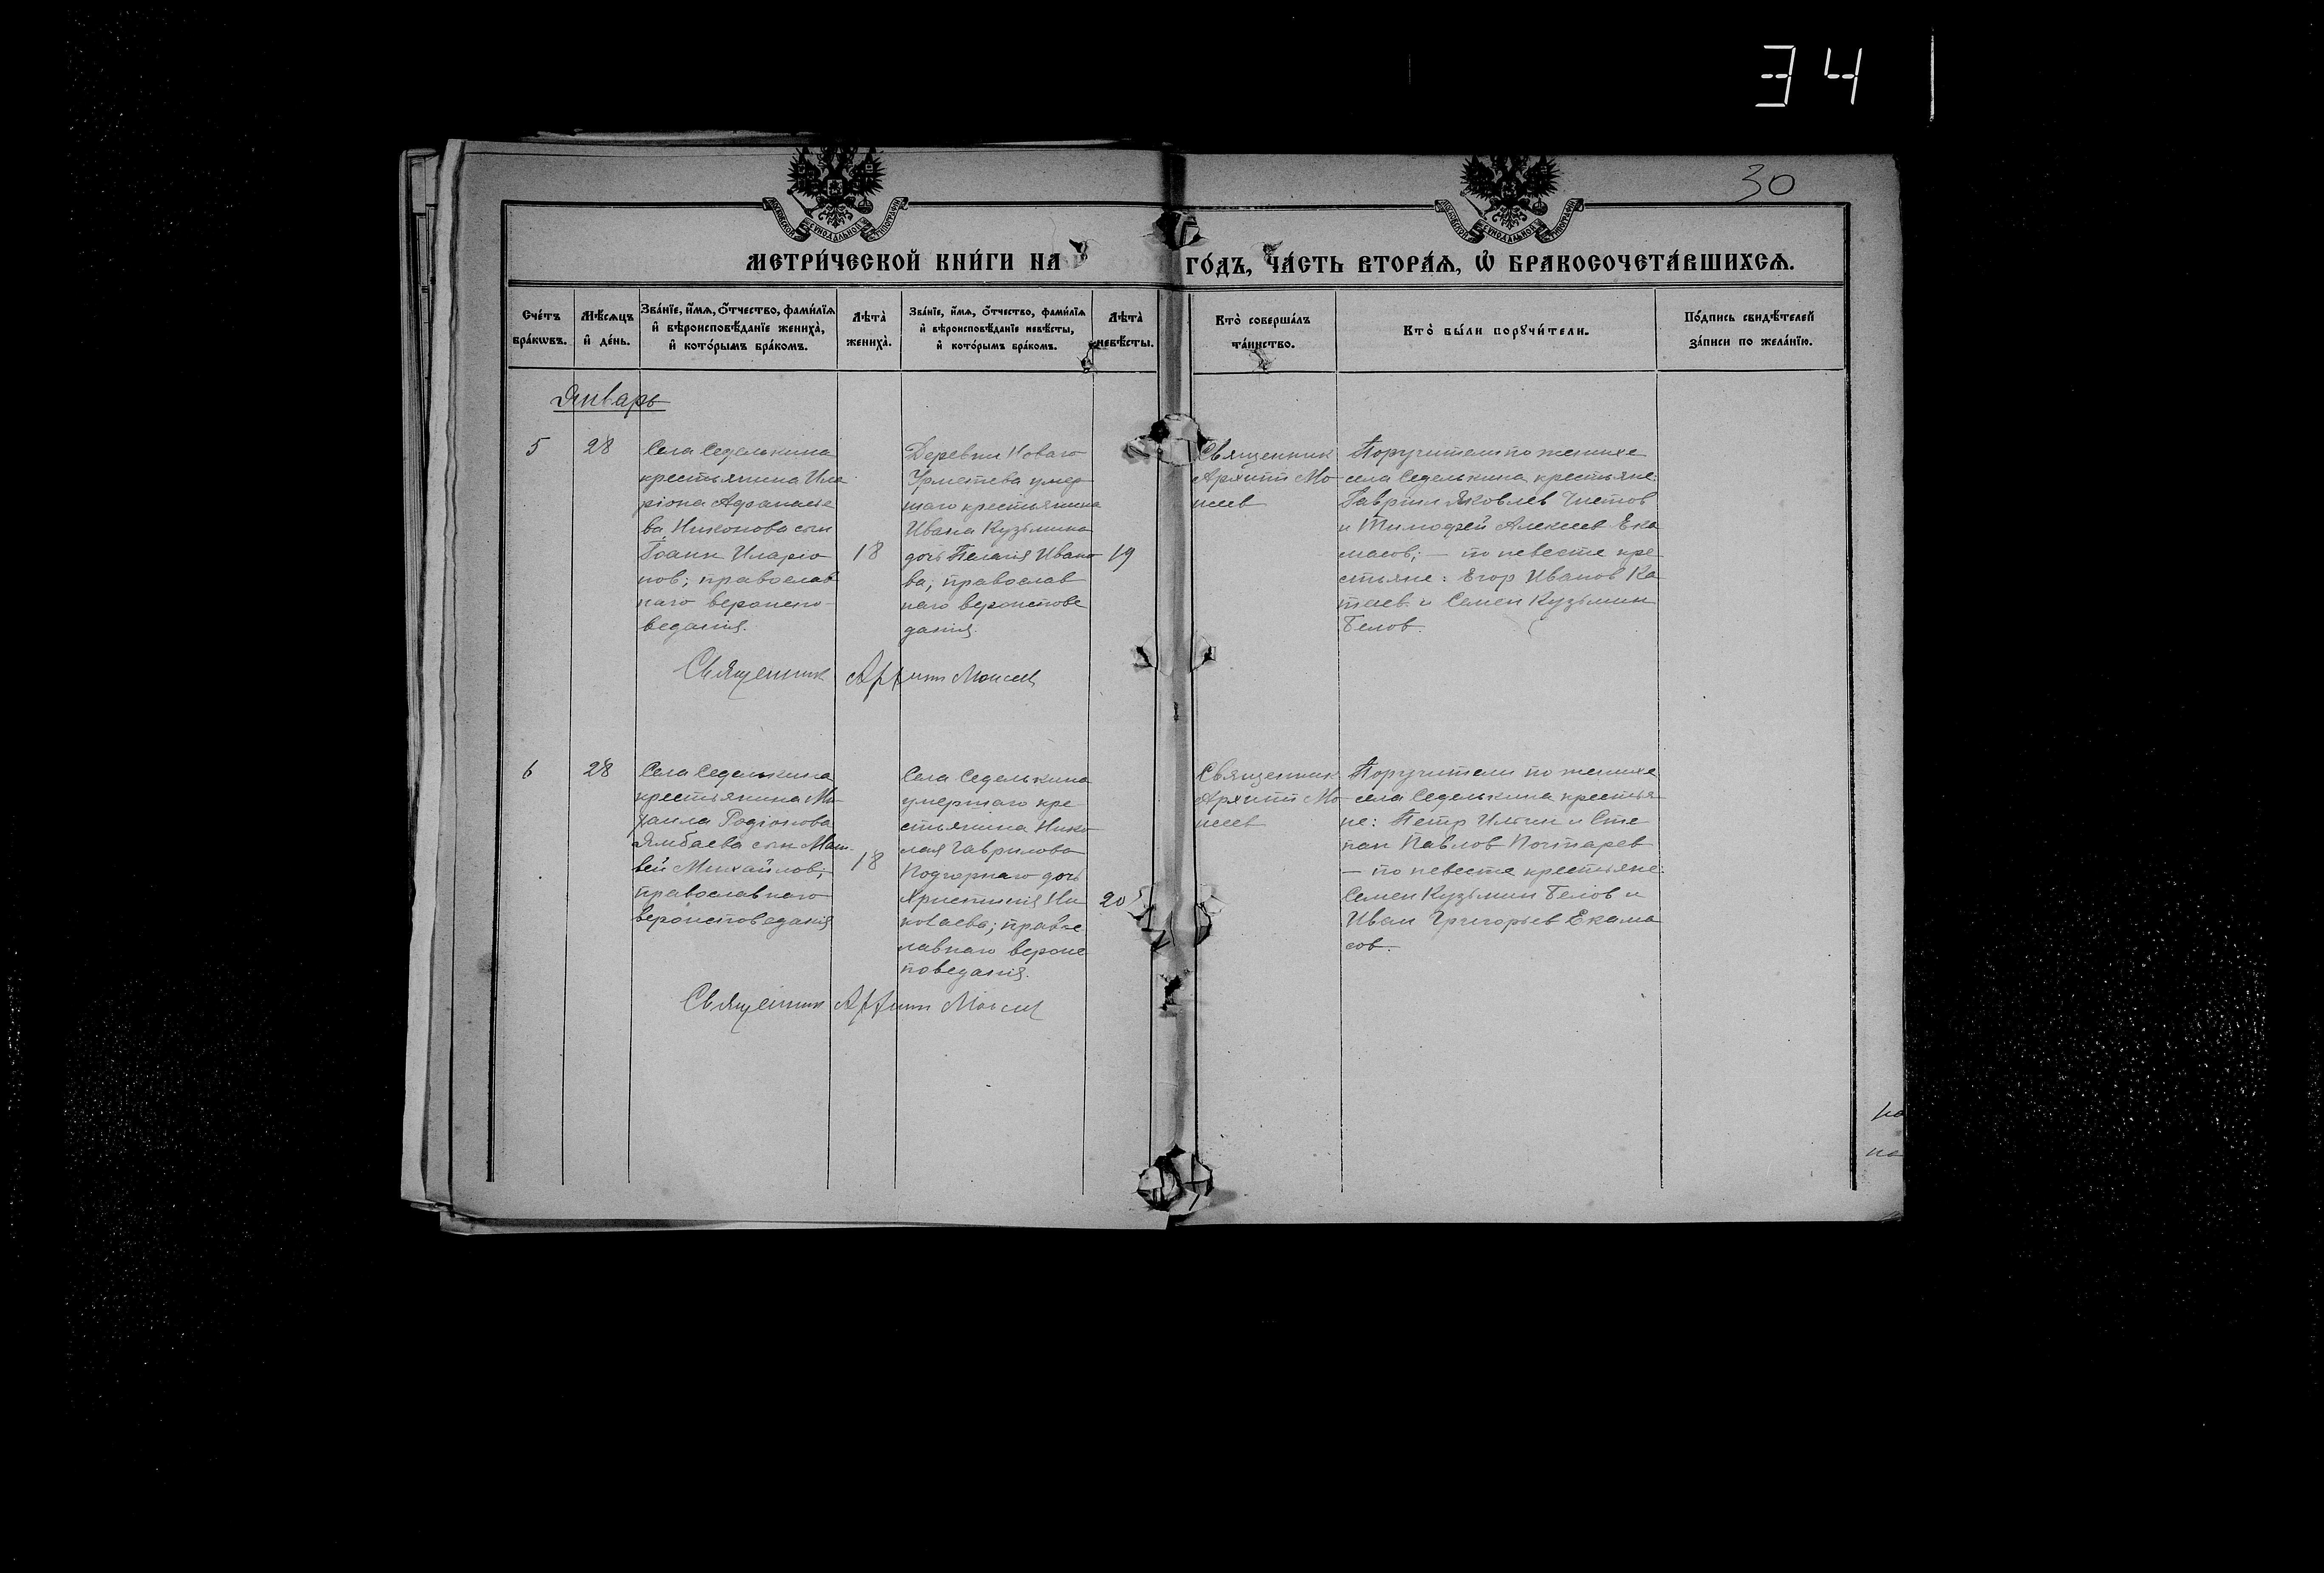 34
30
МЕТРИ́ЧЕСКОЙ КНИ́ГИ НА ГО́ДЪ, ЧА́СТЬ ВТОРА́Ѧ, Ѽ БРАКОСОЧЕТА́ВШИХСѦ.
Сче́тъ бра́кѡвъ.
Мѣ́сѧцъ и҆ де́нь.
Зва́нїе, и҆́мѧ, ѻ҆́тчество, фами́лїѧ и҆ вѣроисповѣ́данїе жениха̀, и҆ кото́рымъ бра́комъ.
Лѣта̀ жениха̀.
Зва́нїе, и҆́мѧ, ѻ҆́тчество, фами́лїѧ и҆ вѣроисповѣ́данїе невѣ́сты, и҆ кото́рымъ бра́комъ.
Лѣта̀ невѣ́сты.
Кто̀ соверша́лъ та́инство.
Кто̀ бы́ли порꙋчи́тели.
По́дпись свидѣ́телей за́писи по жела́нїю.
Январь
5
28
Села Седелькина
крестьянина Ила
ріона Афанасье
ва Никонова сын
Іоанн Иларіо
нов; православ
наго вероиспо-
ведания.
18
Деревни Новаго
Урметева умер
шаго крестьянина
Ивана Кузьмина
дочь Пелагія Ивано
ва; православ
наго вероисповє
данія.
19
Священник
Архипп Мо
исеев
Поручители по женихе
села Седелькина крестьяне:
Гавриил Яковлев Чистов
и Тимофей Алексеев Ека
масов; — по невесте кре
стьяне: Егор Иванов Ка
таев и Семен Кузьмин
Белов.
Священник Архипп Моисеев
6
28
Села Седелькина
крестьянина Ми-
хаила Родіонова
Ямбаева сын Мат-
вей Михайлов;
православнаго
вероисповеданія
18
Села Седелькина
умершаго кре
стьянина Нико
лая Гаврилова
Подгорнаго дочь
Христинія Ни
колаева; правос
лавнаго вероис
поведанія.
20
Священник
Архипп Мо
исеев
Поручители по женихе
села Седелькина крестья
не: Петр Ильин и Сте
пан Павлов Почтарев
— по невесте крестьяне:
Семен Кузьмин Белов и
Иван Григорьев Екама
сов.
Священник Архипп Моисеев